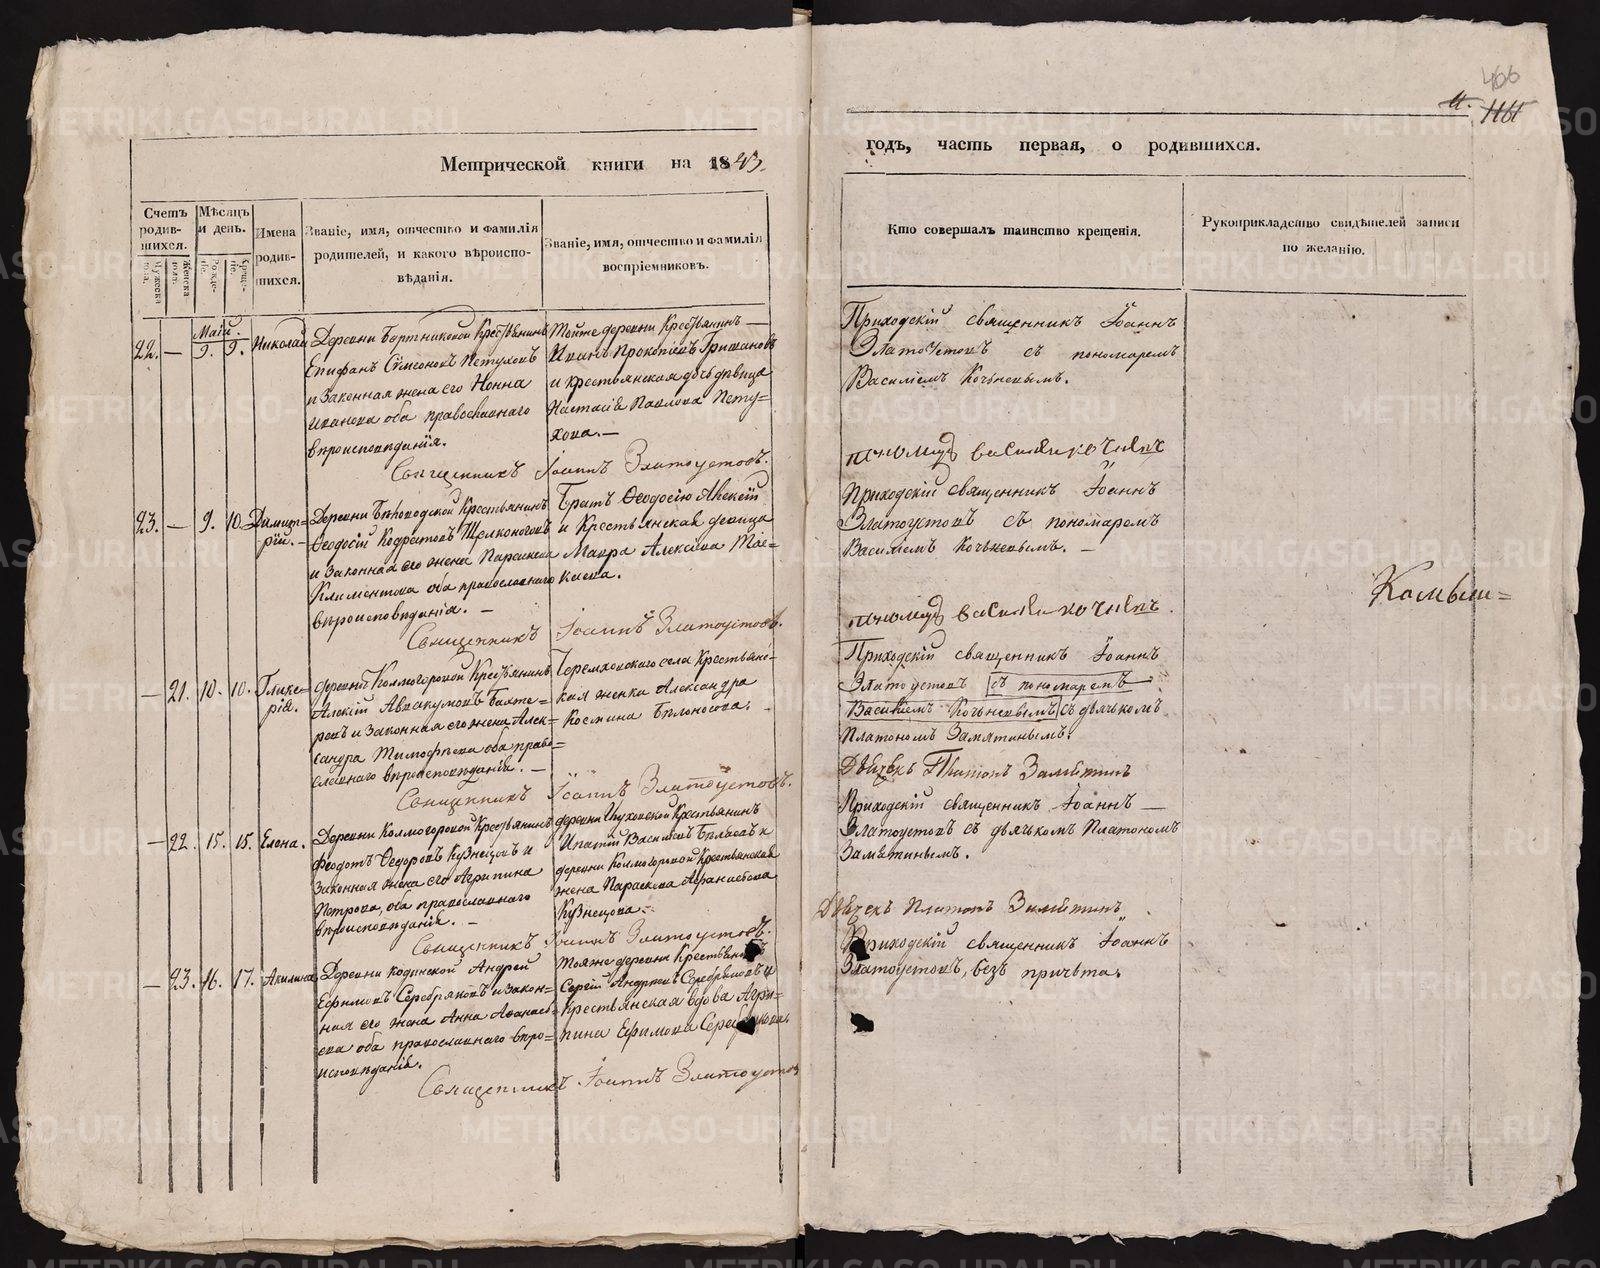 466
Метрической книги на 1843.
годъ, часть первая, о родившихся.
Счетъ родившихся.
Мужеска пола.
Женска пола.
Мѣсяцъ и день.
Рожденіе.
Крещеніе.
Имена родившихся.
Званіе, имя, отчество и фамилія родителей, и какого вѣроисповѣданія.
Званіе, имя, отчество и фамилія воспріемниковъ.
Кто совершалъ таинство крещенія.
Рукоприкладство свидѣтелей записи по желанію.
Маій.
22. — 9. 9. Николай
Деревни Крестьянинъ
Епифанъ Сѵмеоновъ Петуховъ
и законная жена его Нонна
Иванова оба православнаго
вѣроисповѣданія.
Тойже деревни Крестьянинъ —
Иванъ Прокопіевъ
и крестьянская дочь дѣвица
Настасія Павлова Пету=
хова. —
Приходскій священникъ Іоаннъ
Златоустовъ съ пономаремъ
Василіемъ Кочневымъ.
Священникъ Іоаннъ Златоустовъ.
пономарь василій кочневъ
23. — 9. 10. Димит=
рій. —
Деревни Крестьянинъ
Ѳеодосій Кодратовъ Щелконоговъ
и законная его жена Параскева
Климентова оба православнаго
вѣроисповѣданія. —
Братъ Ѳеодосію Алексій
и Крестьянская девица
Мавра Алексіева
Приходскій священникъ Іоаннъ
Златоустовъ съ пономаремъ
Василіемъ Кочневымъ. —
Священникъ Іоаннъ Златоустовъ.
пономарь василій кочневъ.
— 21. 10. 10. Глике=
рія.
деревни Колмогоровой Крестьянинъ
Алексій Аввакумовъ Бахте=
ревъ и законная его жена Алек=
сандра Тимофѣева оба право=
славнаго вѣроисповѣданія. —
Черемховскаго села Крестьянс=
кая женка Александра
Космина Бѣлоносова.
Приходскій священникъ Іоаннъ
Златоустовъ съ пономаремъ
Василіемъ Кочневымъ съ дьячкомъ
Платономъ Замятинымъ.
Священникъ Іоаннъ Златоустовъ.
Дьячекъ Платонъ Замятинъ
— 22. 15. 15. Елена.
Деревни Колмогоровой Крестьянинъ
Феодотъ Ѳедоровъ Кузнецовъ и
законная жена его Агрипина
Петрова, оба православнаго
вѣроисповѣданія. —
деревни Крестьянинъ
Ипатій Васильевъ
деревни Колмогоровой Крестьянская
жена Параскева Афанасьева
Кузнецова. —
Приходскій священникъ Іоаннъ —
Златоустовъ съ дьячкомъ Платономъ
Замятинымъ.
Священникъ Іоаннъ Златоустовъ.
Дьячекъ Платонъ Замятинъ
— 23. 16. 17. Акилина
Деревни Кодинской Андрей
Ефимовъ Серебряковъ и закон=
ная его жена Анна Аѳанась=
ева оба православнаго вѣро=
исповѣданія.
Тояже деревни Крестьянинъ
Сергій Андреевъ Серебряковъ и
Крестьянская вдова Агри=
пина Ефимова Серебрякова.
Приходскій священникъ Іоаннъ
Златоустовъ, безъ причета.
Священникъ Іоаннъ Златоустов
Камыш=
METRIKI.GASO-URAL.RU